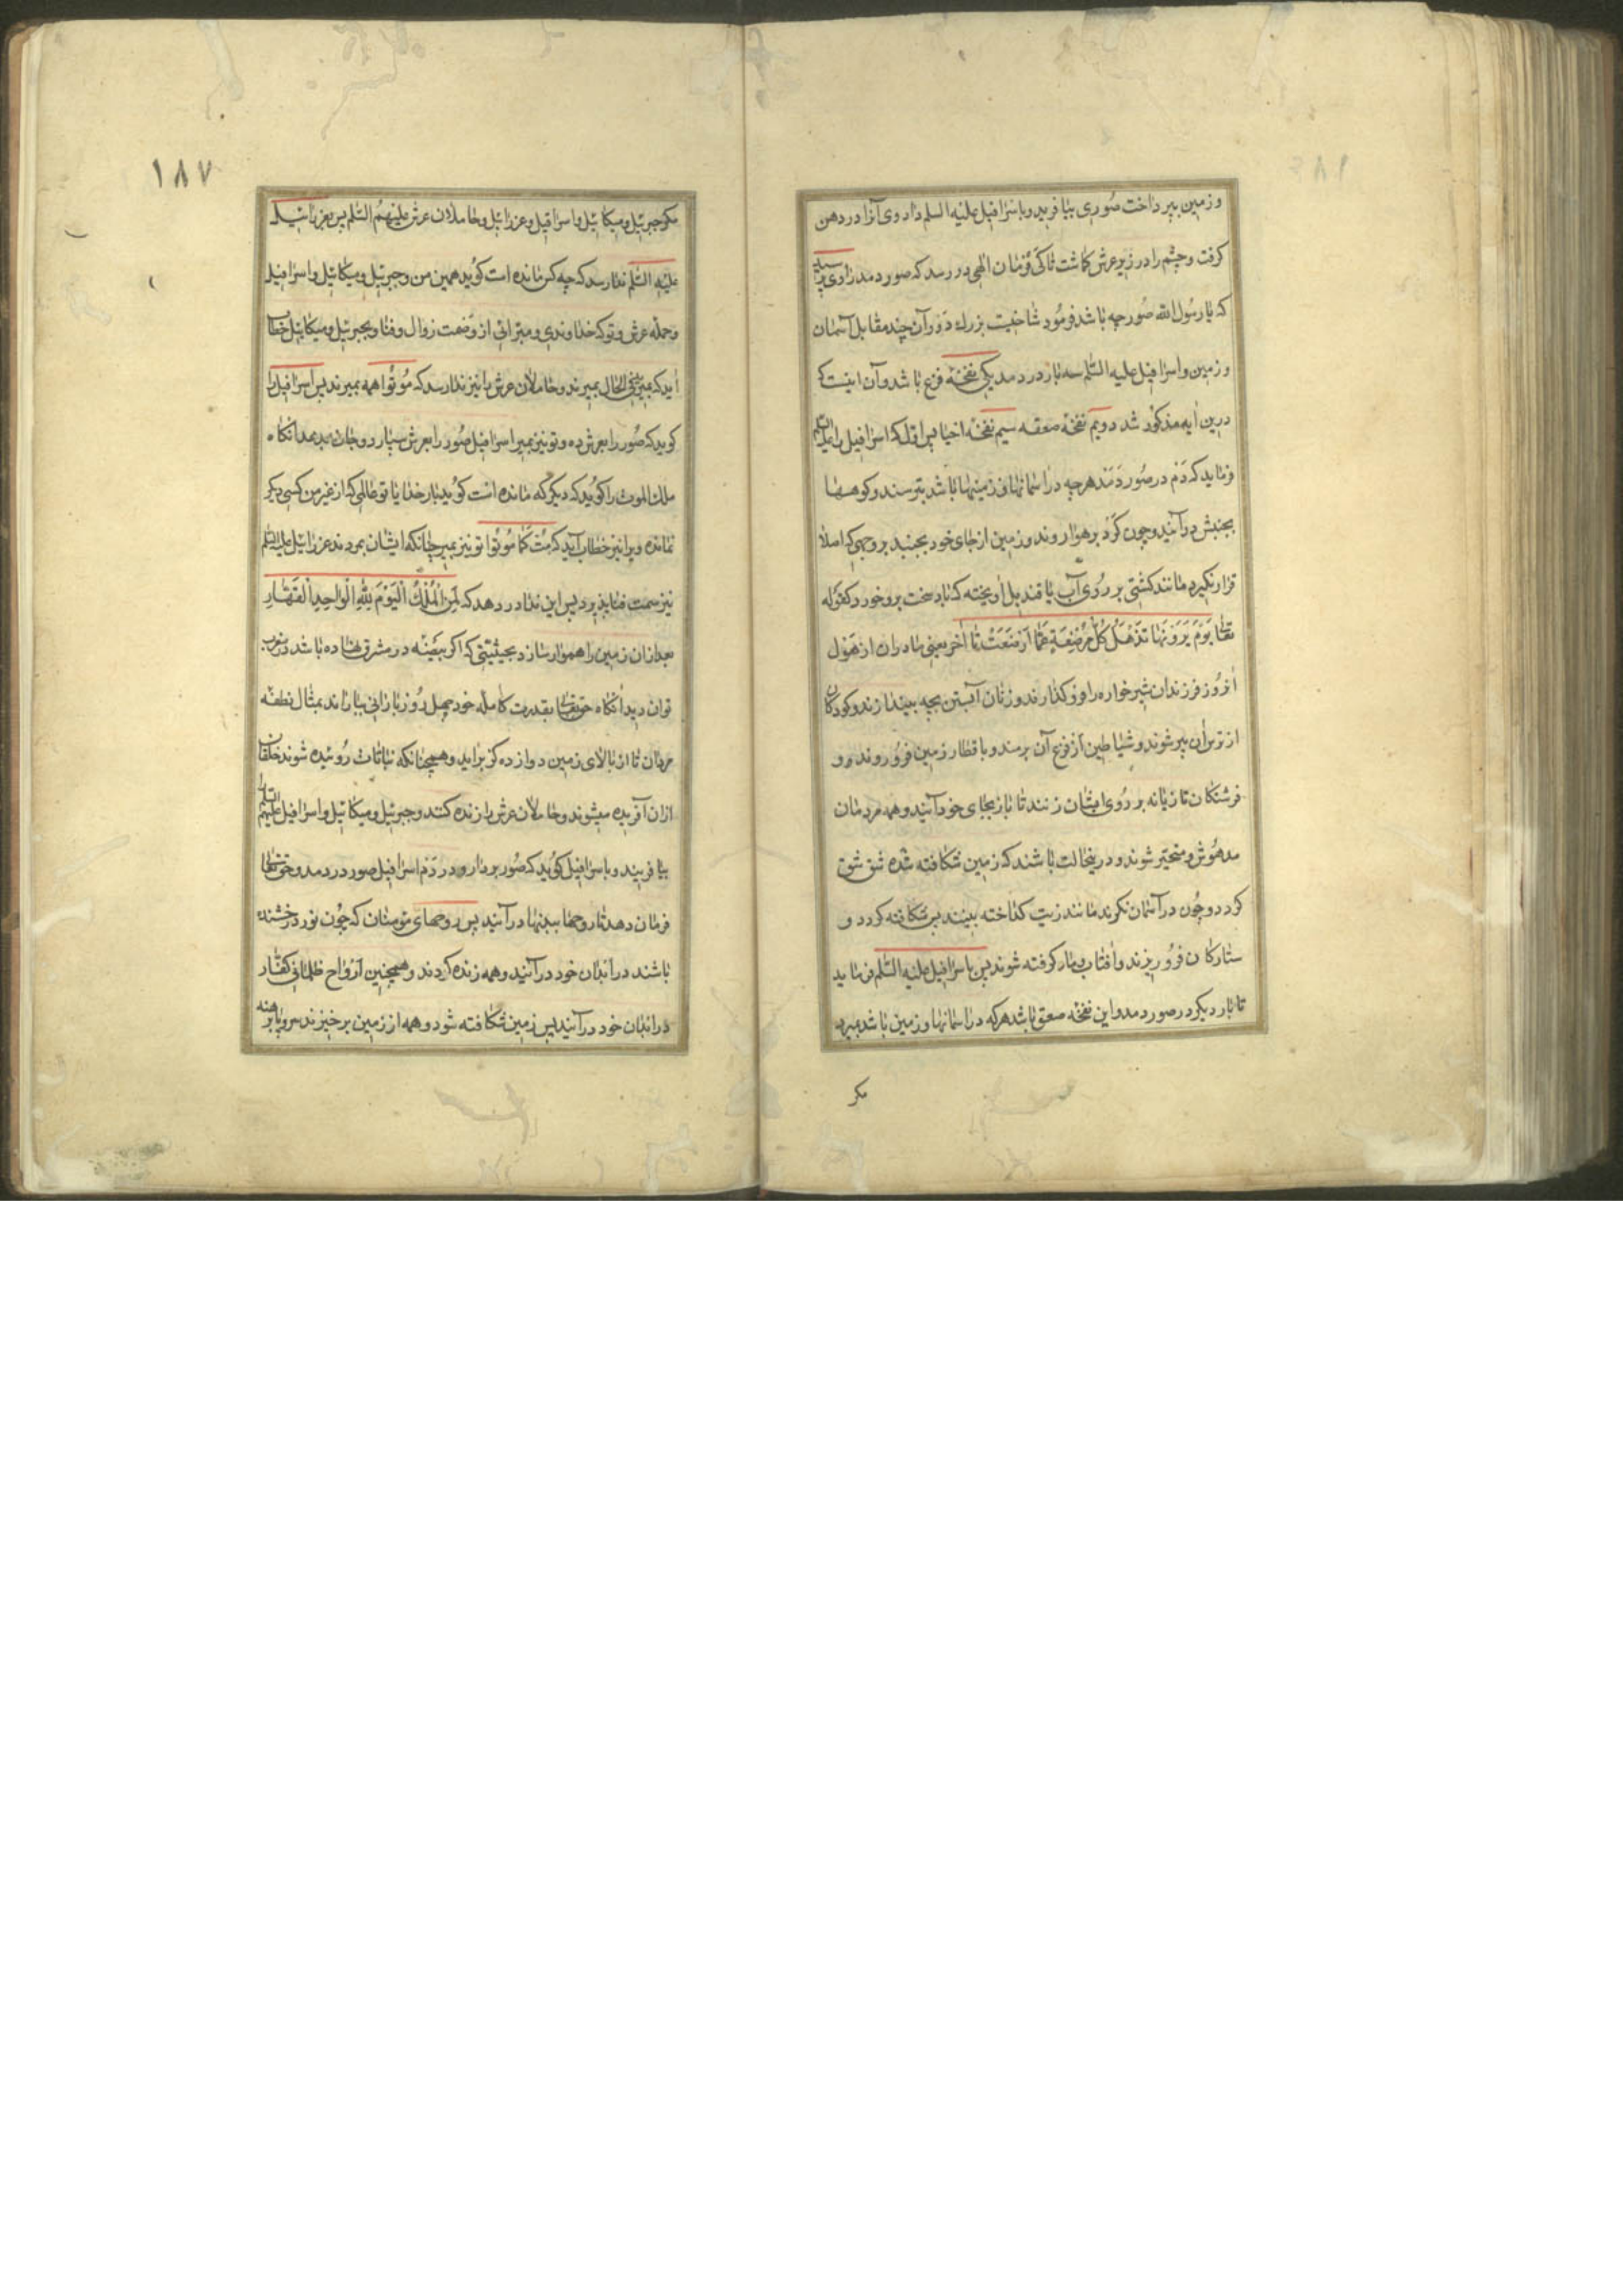 و زمین بپرداخت صُوری بیافرید و باسرافیل علیه السلم داد وی آنرا در دهن
کرفت و چشم را در زیر عرش کماشت تا کی فرمان الهی در رسد که صور دمد راوی پرسید
که یا رسول الله صُور چه باشد فرمُود شاخیست بزرك دَورآن چند مقابل آسمان
و زمین و اسرافیل علیه السّلم سه بار دردمد یکی نفخهٔ فزع باشد و آن اینست که
درین آیه مذکور شد دویم نفخهٔ صعقه سیم نفخهٔ احیا پس اوّلکه اسرافیل را علیه السلم
فرماید که دَم در صُور دَمَد هر چه در اسمانها و زمینها باشد بترسند و کوهها
بجنبش درآیند و چون کَرد بر هوا روند و زمین از جای خود بجنبد بر وجهی که اصلا
قرار نکیرد مانند کشتی بر رُوی آب یا قندیل اویخته که باد سخت برو خورد کقوله
تعالی یَوْمَ یَرَوْنَهَا تَذْهَلُ کُلُّ مُرْضِعَةٍ عَمَّا اَرْضَعَتْ تا آخر یعنی مادران از هَول
آنرُوز فرزندان شیر خواره را فرو کذارند و زنان آبستن بچه بیندازند و کودکان
از ترس آن پیر شوند و شیاطین از فزع آن برمند و باقطار زمین فرُو روند و
فرشتکان تازیانه بر رُوی ایشان زنند تا باز بجای خود آیند و همه مردمان
مدهُوش و متحیّر شوند و درینحالت باشند که زمین شکافته شده شق شق
کردد و چُون در آسمان نکرند مانند زیت کداخته بینند پس شکافته کردد و
ستارکان فرُو ریزند و آفتاب و ماه کرفته شوند پس باسرافیل علیه السّلم فرماید
تا بار دیکر در صور دمد و این نفخهٔ صعق باشد هر که در اسمانها و زمین باشد بمیرد
مکر
۱۸۷
مکر جبرئیل و میکائیل و اسرافیل و عزرائیل و حاملان عرش علیهمُ السّلم پس بعزرائیل
علیه السّلم ندا رسد که چه کس مانده است کوُید همین من و جبرئیل و میکائیل و اسرافیل
و حمله عرش و تو که خداوندی و مبرّائی از وَصمت زوال و فنا و بجبرئیل و میکائیل خطاب
آید که بمیرید فی الحال بمیرند و حاملان عرش را نیز ندا رسد که مُوتُوا همه بمیرند پس اسرافیل را
کوید که صُور را بعرش ده و تو نیز بمیر اسرافیل صُور را بعرش سپارد و جان بدهد آنکاه
ملك الموت را کوُید که دیکر که مانده است کوُید بار خدایا تو عالمی که از غیر من کسی دیکر
نمانده ویرا نیز خطاب آید که مُت کَمَا مُوتُوا تو نیز بمیر چنانکه ایشان بمردند عزرائیل علیه السلم
نیز سمت فنا پذیرد پس این ندا در دهد که لِمَنِ الْمُلْكُ الْیَوْمَ لِلّٰهِ الْوَاحِدِ الْقَهَّارِ
بعد ازان زمین را هموار سازد بحیثیّتی که اکر بیضه در مشرق نهاده باشد در مغرب
توان دید آنکاه حقتعالی بقدرت کامله خود چهل رُوز بارانی بباراند بمثال نطفه
مردان تا از بالای زمین دوازده کز براید و همچنانکه نباتات رُوئیده شوند خلقان
ازان آفریده میشوند و حاملان عرش را زنده کنند و جبرئیل و میکائیل و اسرافیل علیهم السلم
بیافریند و باسرافیل کوُید که صُور بردار و در دَم اسرافیل صور دردمد و حق تعالی
فرمان دهد تا روحها ببدنها درآیند پس روحهای مومنان که چُون نور درخشنده
باشند در ابدان خود درآیند و همه زنده کردند و همچنین اَرْوٰاح ظلمانی کفّار
در ابدان خود درآیند پس زمین شکافته شود و همه از زمین برخیزند سر و پا برهنه